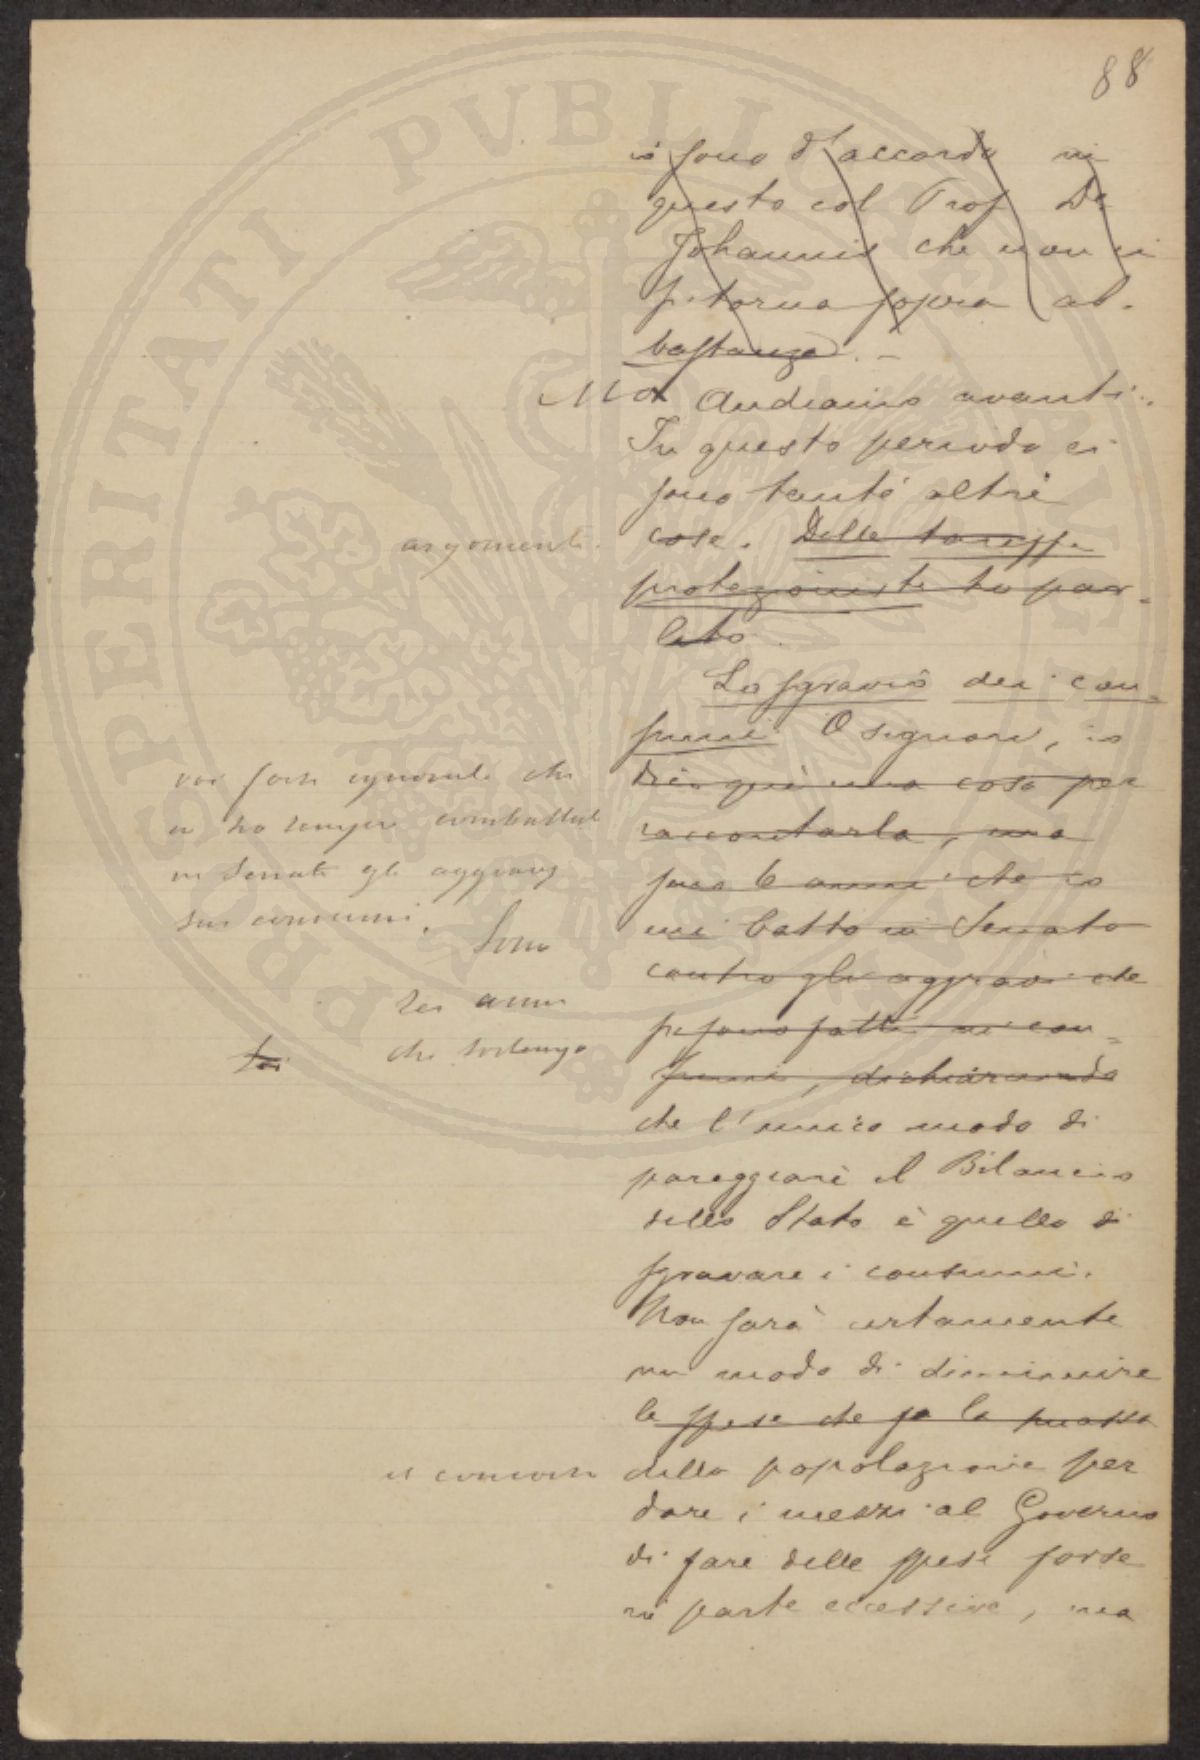 88
io sono d'accordo in
questo col Prof De
Johannis che non ci
si torna sopra ab-
bastanza. -
Ma Andiamo avanti.
In questo periodo ci
sono tante altri
argomenti.
cose. Delle tariffe
protezioniste ho par-
lato.
Lo sgravio dei con-
sumi. O signori, io
voi forse ignorate che
io ho sempre combattuto
in Senato gli aggravi
sui consumi. Sono
sei anni
che sostengo
dirò qui una cosa per
raccontarla, ma
sono 6 anni che io
mi batto in Senato
contro gli aggravi che
si sono fatti ai con-
sumi, dichiarando
che l'unico modo di
pareggiare il Bilancio
dello Stato è quello di
sgravare i consumi.
Non sarà certamente
un modo di diminuire
le spese che fa la massa
della popolazione per
dare i mezzi al Governo
di fare delle spese forse
in parte eccessive, ma
PVBLI
PROSPERITATI